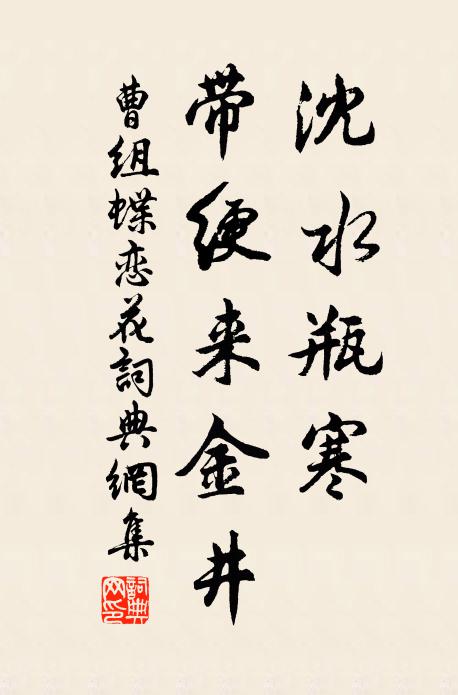 沈水瓶寒
带绠来金井
曹组蝶恋花詞典網集
詞典网印